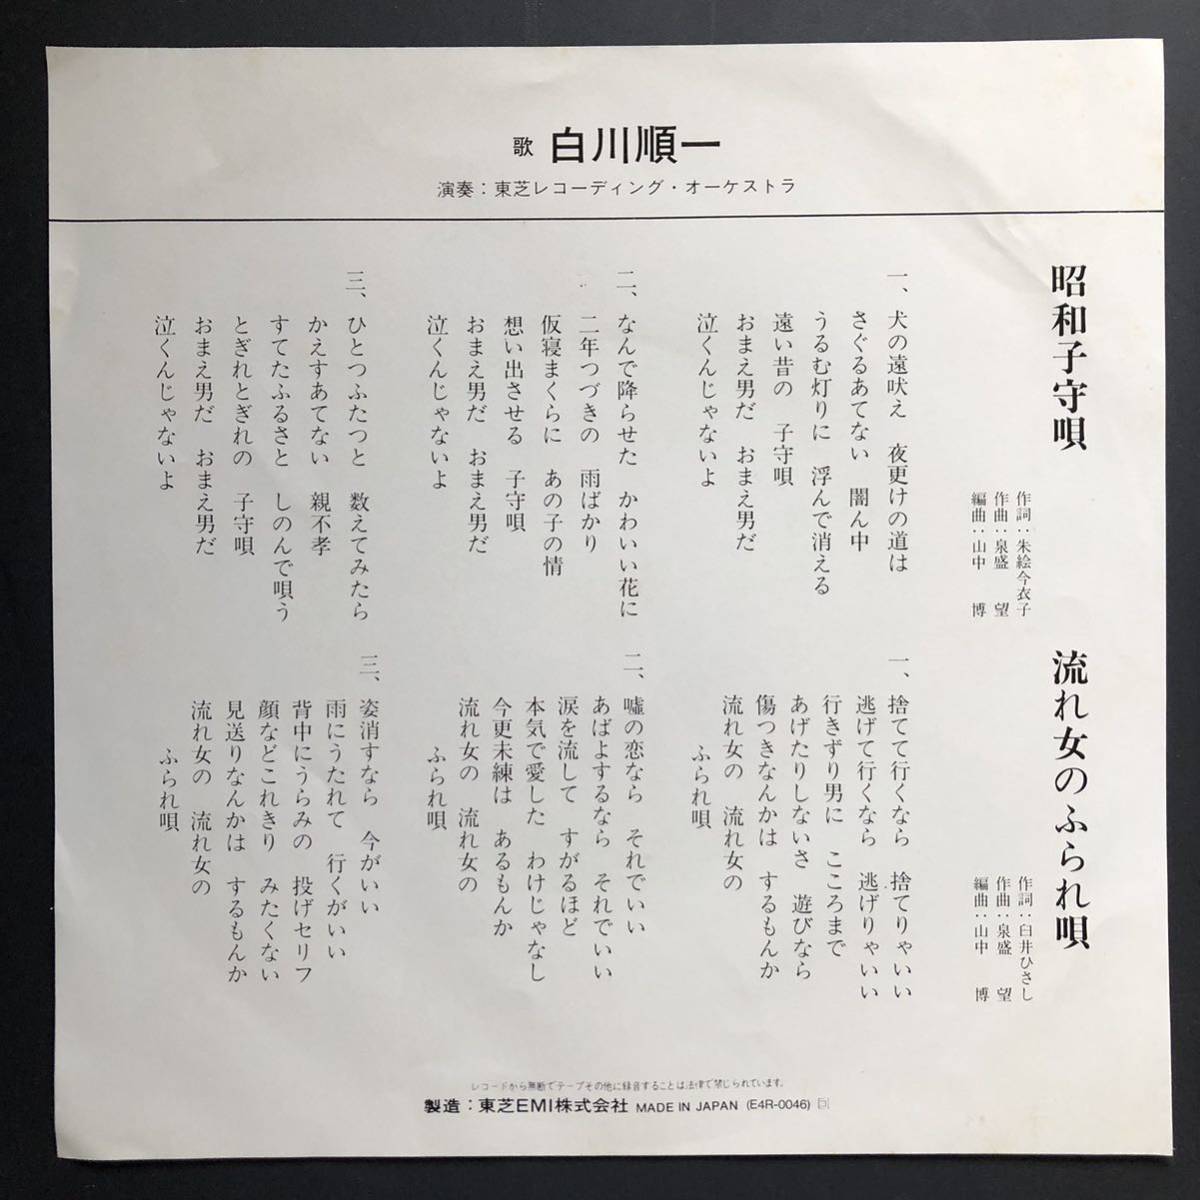 歌 白川順一
演奏：東芝レコーディング・オーケストラ
昭和子守唄
作詞：朱絵今衣子
作曲：泉盛 望
編曲：山中 博
一、犬の遠吠え 夜更けの道は
さぐるあてない 闇ん中
うるむ灯りに 浮んで消える
遠い昔の 子守唄
おまえ男だ おまえ男だ
泣くんじゃないよ
二、なんで降らせた かわいい花に
二年つづきの 雨ばかり
仮寝まくらに あの子の情
想い出させる 子守唄
おまえ男だ おまえ男だ
泣くんじゃないよ
三、ひとつふたつと 数えてみたら
かえすあてない 親不孝
すてたふるさと しのんで唄う
とぎれとぎれの 子守唄
おまえ男だ おまえ男だ
泣くんじゃないよ
流れ女のふられ唄
作詞：臼井ひさし
作曲：泉盛 望
編曲：山中 博
一、捨てて行くなら 捨てりゃいい
逃げて行くなら 逃げりゃいい
行きずり男に こころまで
あげたりしないさ 遊びなら
傷つきなんかは するもんか
流れ女の 流れ女の
ふられ唄
二、嘘の恋なら それでいい
あばよするなら それでいい
涙を流して すがるほど
本気で愛した わけじゃなし
今更未練は あるもんか
流れ女の 流れ女の
ふられ唄
三、姿消すなら 今がいい
雨にうたれて 行くがいい
背中にうらみの 投げセリフ
顔などこれきり みたくない
見送りなんかは するもんか
流れ女の 流れ女の
ふられ唄
レコードから無断でテープその他に録音することは法律で禁じられています。
製造：東芝EMI株式会社 MADE IN JAPAN (E4R-0046)